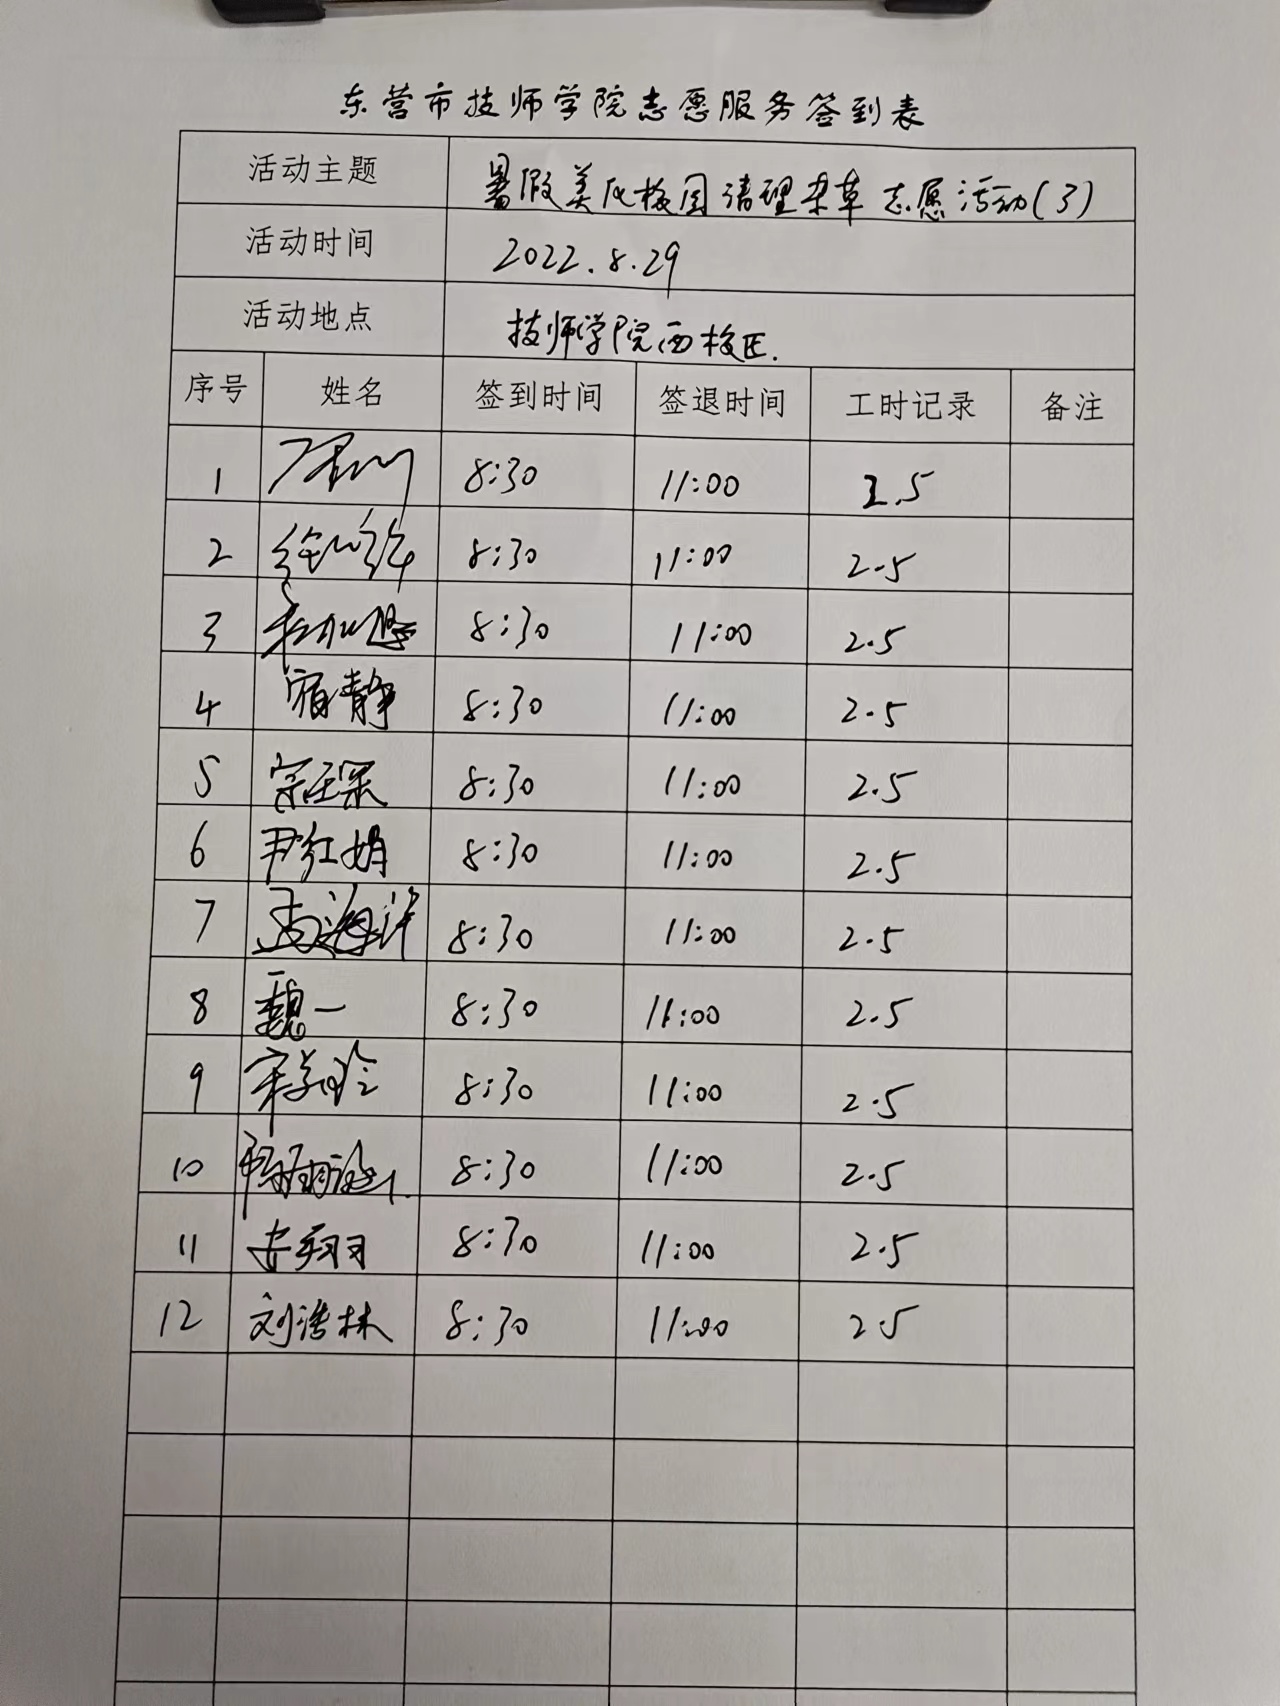 东营市技师学院志愿服务签到表
活动主题 暑假美化校园清理杂草志愿活动(3)
活动时间 2022.8.29
活动地点 技师学院西校区.
序号 姓名 签到时间 签退时间 工时记录 备注
1 8:30 11:00 2.5
2 8:30 11:00 2.5
3 8:30 11:00 2.5
4 宿静 8:30 11:00 2.5
5 8:30 11:00 2.5
6 尹红娟 8:30 11:00 2.5
7 孟海洋 8:30 11:00 2.5
8 魏一 8:30 11:00 2.5
9 8:30 11:00 2.5
10 8:30 11:00 2.5
11 安翔羽 8:30 11:00 2.5
12 刘浩林 8:30 11:00 2.5